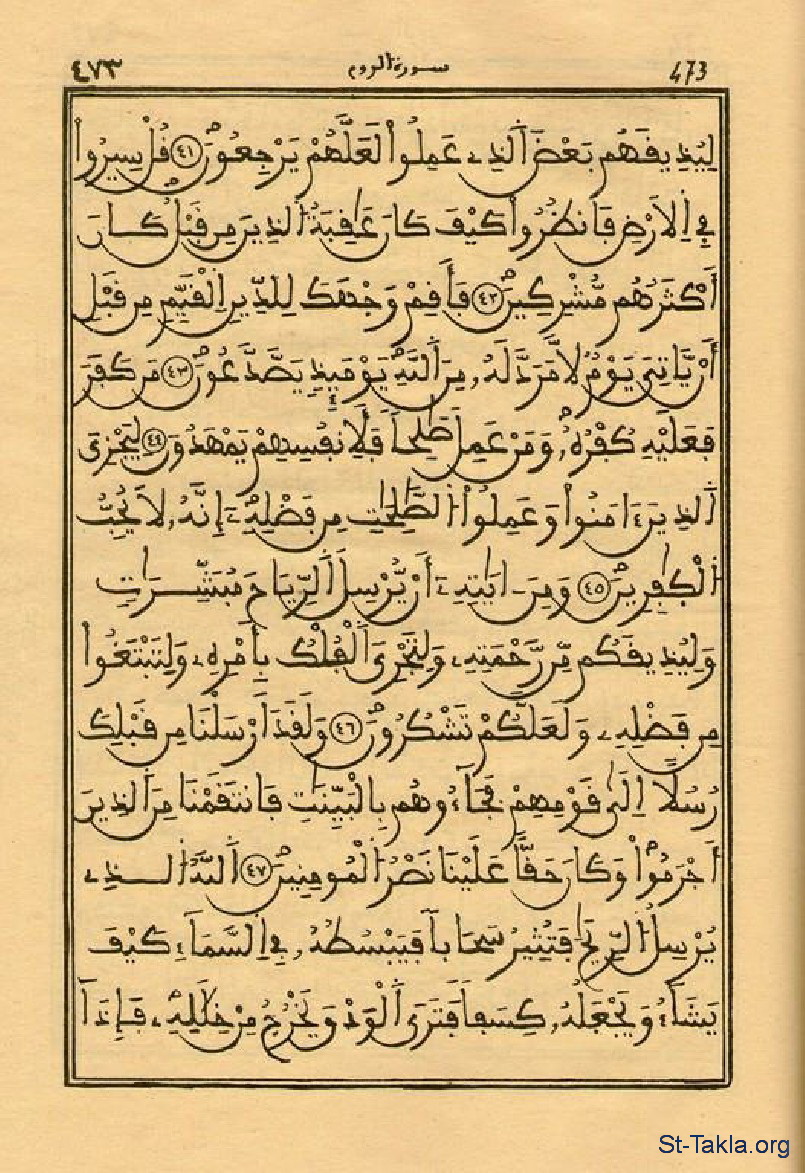 473 سورة الروم ٤٧٣
لِيُذِيقَهُم بَعْضَ اَ۬لذِے عَمِلُواْ لَعَلَّهُمْ يَرْجِعُونَ ٤١ قُلْ سِيرُواْ
فِے اِ۬لَارْضِ فَانظُرُواْ كَيْفَ كَانَ عَٰقِبَةُ اُ۬لذِينَ مِن قَبْلُ كَانَ
أَكْثَرُهُم مُّشْرِكِينَ ٤٢ فَأَقِمْ وَجْهَكَ لِلدِّينِ اِ۬لْقَيِّمِ مِن قَبْلِ
أَنْ يَّاتِيَ يَوْمٌ لَّا مَرَدَّ لَهُۥ مِنَ اَ۬للَّهِ يَوْمَئِذٍ يَصَّدَّعُونَ ٤٣ مَن كَفَرَ
فَعَلَيْهِ كُفْرُهُۥ وَمَنْ عَمِلَ صَٰلِحاً فَلِأَنفُسِهِمْ يَمْهَدُونَ ٤٤ لِيَجْزِيَ
اَ۬لذِينَ ءَامَنُواْ وَعَمِلُواْ اُ۬لصَّٰلِحَٰتِ مِن فَضْلِهِۦٓ إِنَّهُۥ لَا يُحِبُّ
اُ۬لْكَٰفِرِينَ ٤٥ وَمِنَ اٰيَٰتِهِۦٓ أَنْ يُّرْسِلَ اَ۬لرِّيَاحَ مُبَشِّرَٰتٍ
وَلِيُذِيقَكُم مِّن رَّحْمَتِهِۦ وَلِتَجْرِيَ اَ۬لْفُلْكُ بِأَمْرِهِۦ وَلِتَبْتَغُواْ
مِن فَضْلِهِۦ وَلَعَلَّكُمْ تَشْكُرُونَ ٤٦ وَلَقَدَ اَرْسَلْنَا مِن قَبْلِكَ
رُسُلاً اِلَىٰ قَوْمِهِمْ فَجَآءُوهُم بِالْبَيِّنَٰتِ فَانتَقَمْنَا مِنَ اَ۬لذِينَ
أَجْرَمُواْ وَكَانَ حَقّاً عَلَيْنَا نَصْرُ اُ۬لْمُومِنِينَ ٤٧ اَ۬للَّهُ اُ۬لذِے
يُرْسِلُ اُ۬لرِّيَٰحَ فَتُثِيرُ سَحَاباً فَيَبْسُطُهُۥ فِے اِ۬لسَّمَآءِ كَيْفَ
يَشَآءُ وَيَجْعَلُهُۥ كِسَفاً فَتَرَى اَ۬لْوَدْقَ يَخْرُجُ مِنْ خِلَٰلِهِۦ فَإِذَآ
St-Takla.org